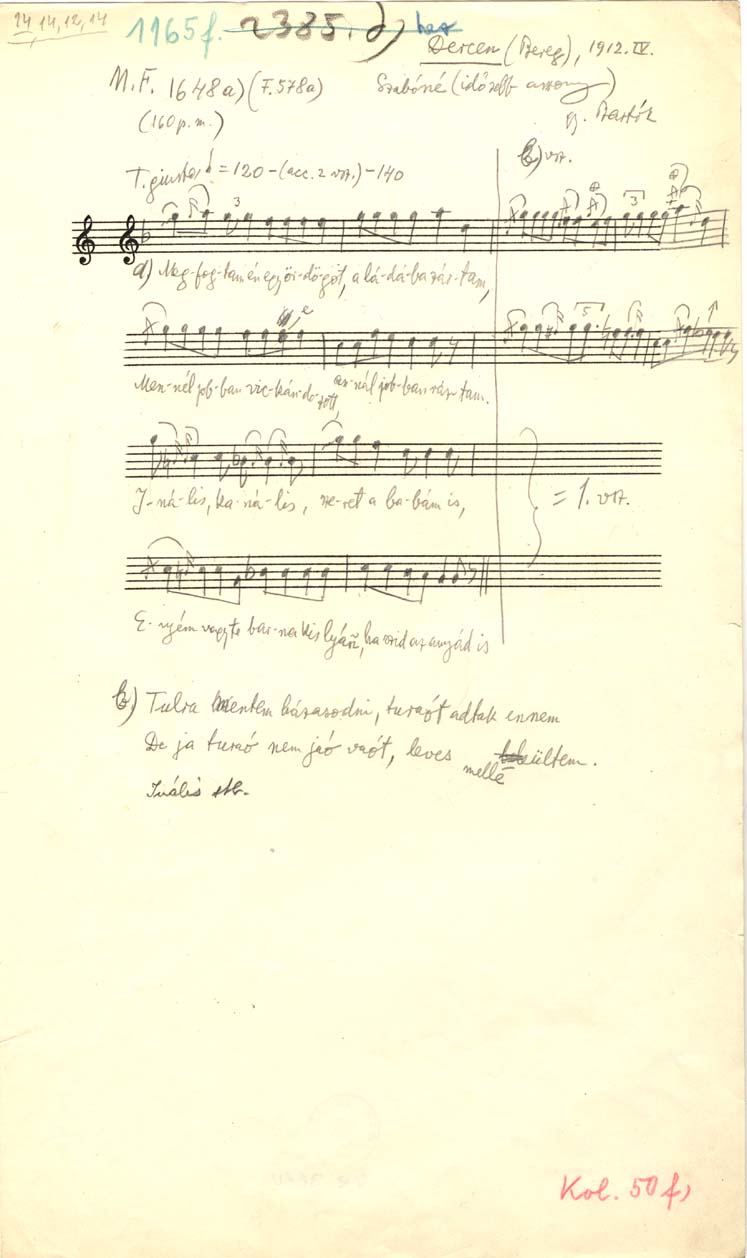 14, 14, 12, 14
1165f. 2385. d)
Dercen (Bereg), 1912. IV.
M.F. 1648a) (F. 578a)
Szabóné (idősebb asszony)
(160 p.m.)
gy. Bartók
T. giusto ♩ = 120 - (acc. 2 vsz.) - 140
b) vsz.
a) Meg-fog-tam én egy ör-dö-göt, a lá-dá-ba zár-tam,
Men-nél job-ban vic-kán-do-zott, an-nál job-ban ráz-tam.
I-ná-lis, ka-ná-lis, sze-ret a ba-bám is,
= 1. vsz.
E-nyém vagy te bar-na kis lyáñ, ha szid az anyád is
b) Tulra mentem házasodni, turaót adtak ennem
De ja turaó nem jaó vaót, leves mellé ültem.
Inális stb.
Kol. 50 f)